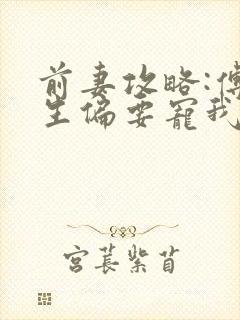 前妻攻略:傅
生偏要宠我
宫苌紫苜